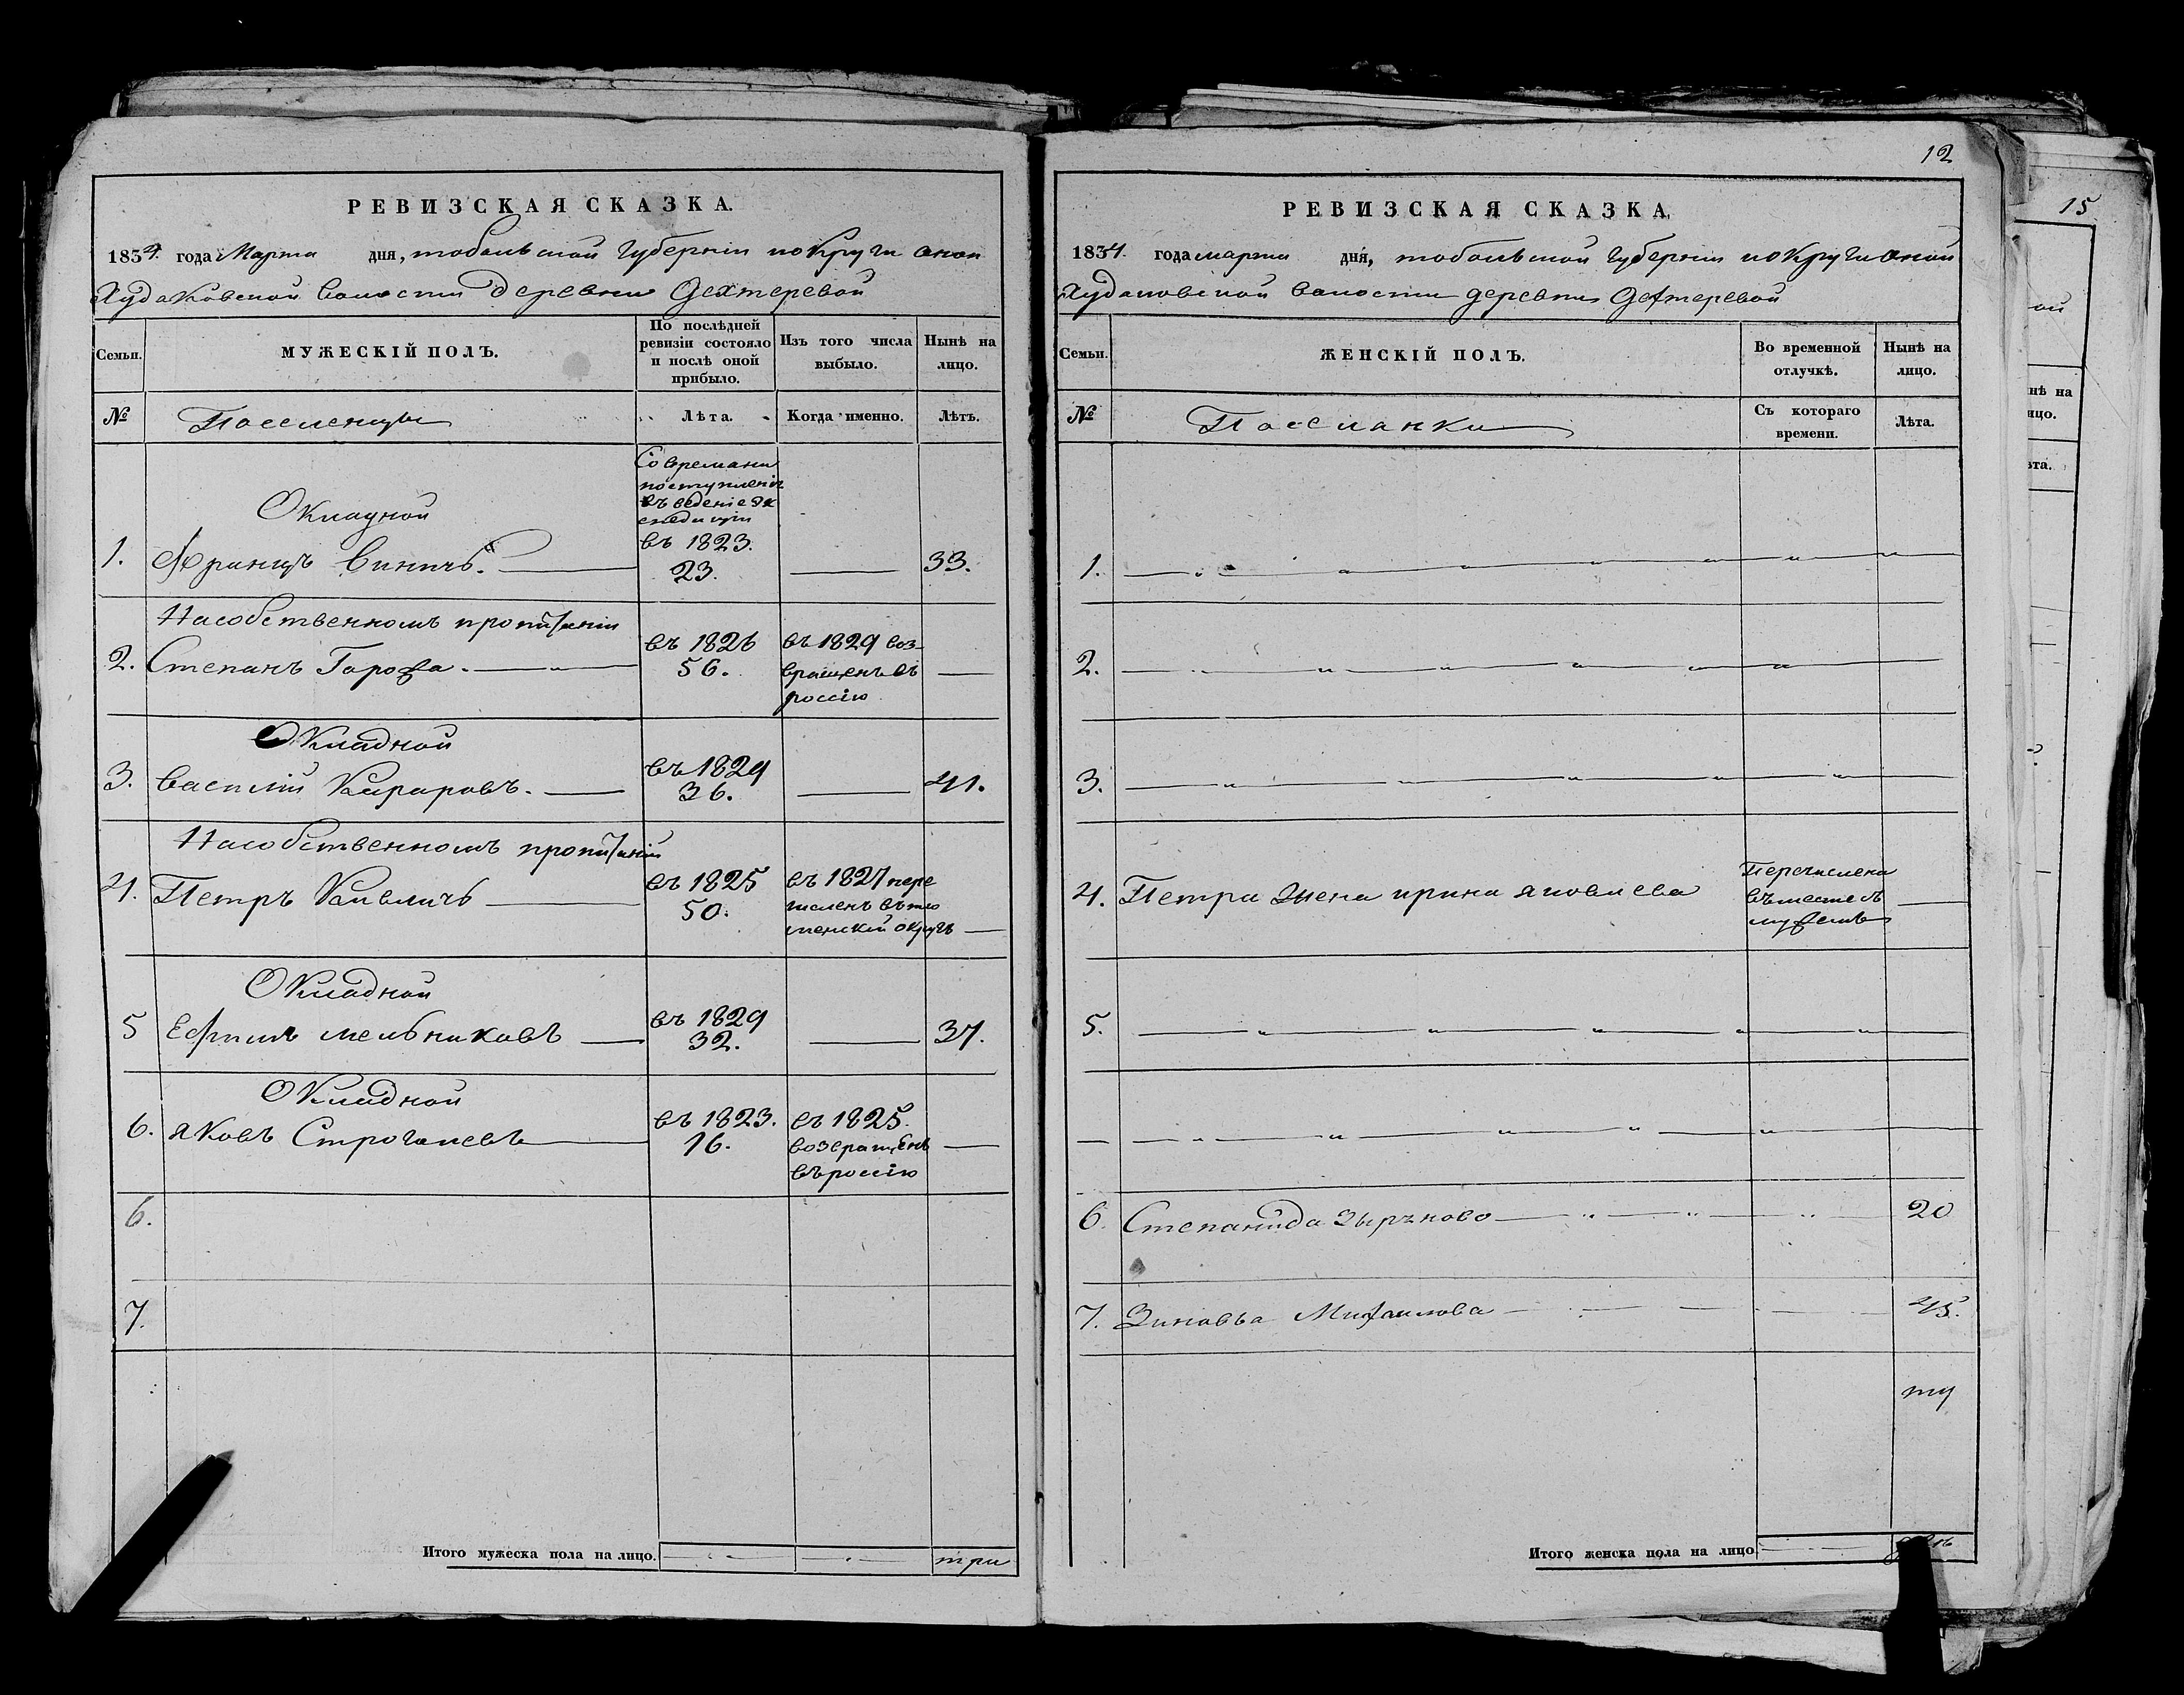 РЕВИЗСКАЯ СКАЗКА.
1834. года Марта дня, тобольской губернiи по Круги оной
Худяковской волости деревни Дехтеревой
Семьи.
МУЖЕСКІЙ ПОЛЪ.
По послѣдней ревизіи состояло и послѣ оной прибыло.
Изъ того числа выбыло.
Нынѣ на лицо.
№
Поселенцы
Лѣта.
Когда именно.
Лѣтъ.
Со времани
поступленiя
въ веденiе Эк
спедицiи
Окладной
въ 1823.
1. Францъ 23. 33.
На собственномъ пропитанiи
въ 1826 въ 1829 воз-
2. Степанъ Гароха. 56. вращенъ въ
россiю
Окладной
въ 1829
3. Василiй 36. 41.
На собственномъ пропитанiи
въ 1825 въ 1827 пере
4. Петръ 50. численъ въ тю
менскiй округъ
Окладной
въ 1829
5 Ефимъ мельниковъ 32. 37.
Окладной
въ 1823. въ 1825.
6. яковъ 16. возвращенъ
въ россiю
6.
7.
Итого мужеска пола на лицо. три
12
РЕВИЗСКАЯ СКАЗКА.
1834. года марта дня, тобольской губернiи по Круги оной
Худяковской волости деревни Дехтеревой
Семьи.
ЖЕНСКІЙ ПОЛЪ.
Во временной отлучкѣ.
Нынѣ на лицо.
№
Поселанки
Съ котораго времени.
Лѣта.
1.
2.
3.
Перечислена
4. Петра жена ирина яковлева вместе съ
мужемъ
5.
6. Степанида Зырянова 20
7. Зиновья Михаилова 45.
Итого женска пола на лицо
15
ой
нѣ на
ицо.
ѣта.